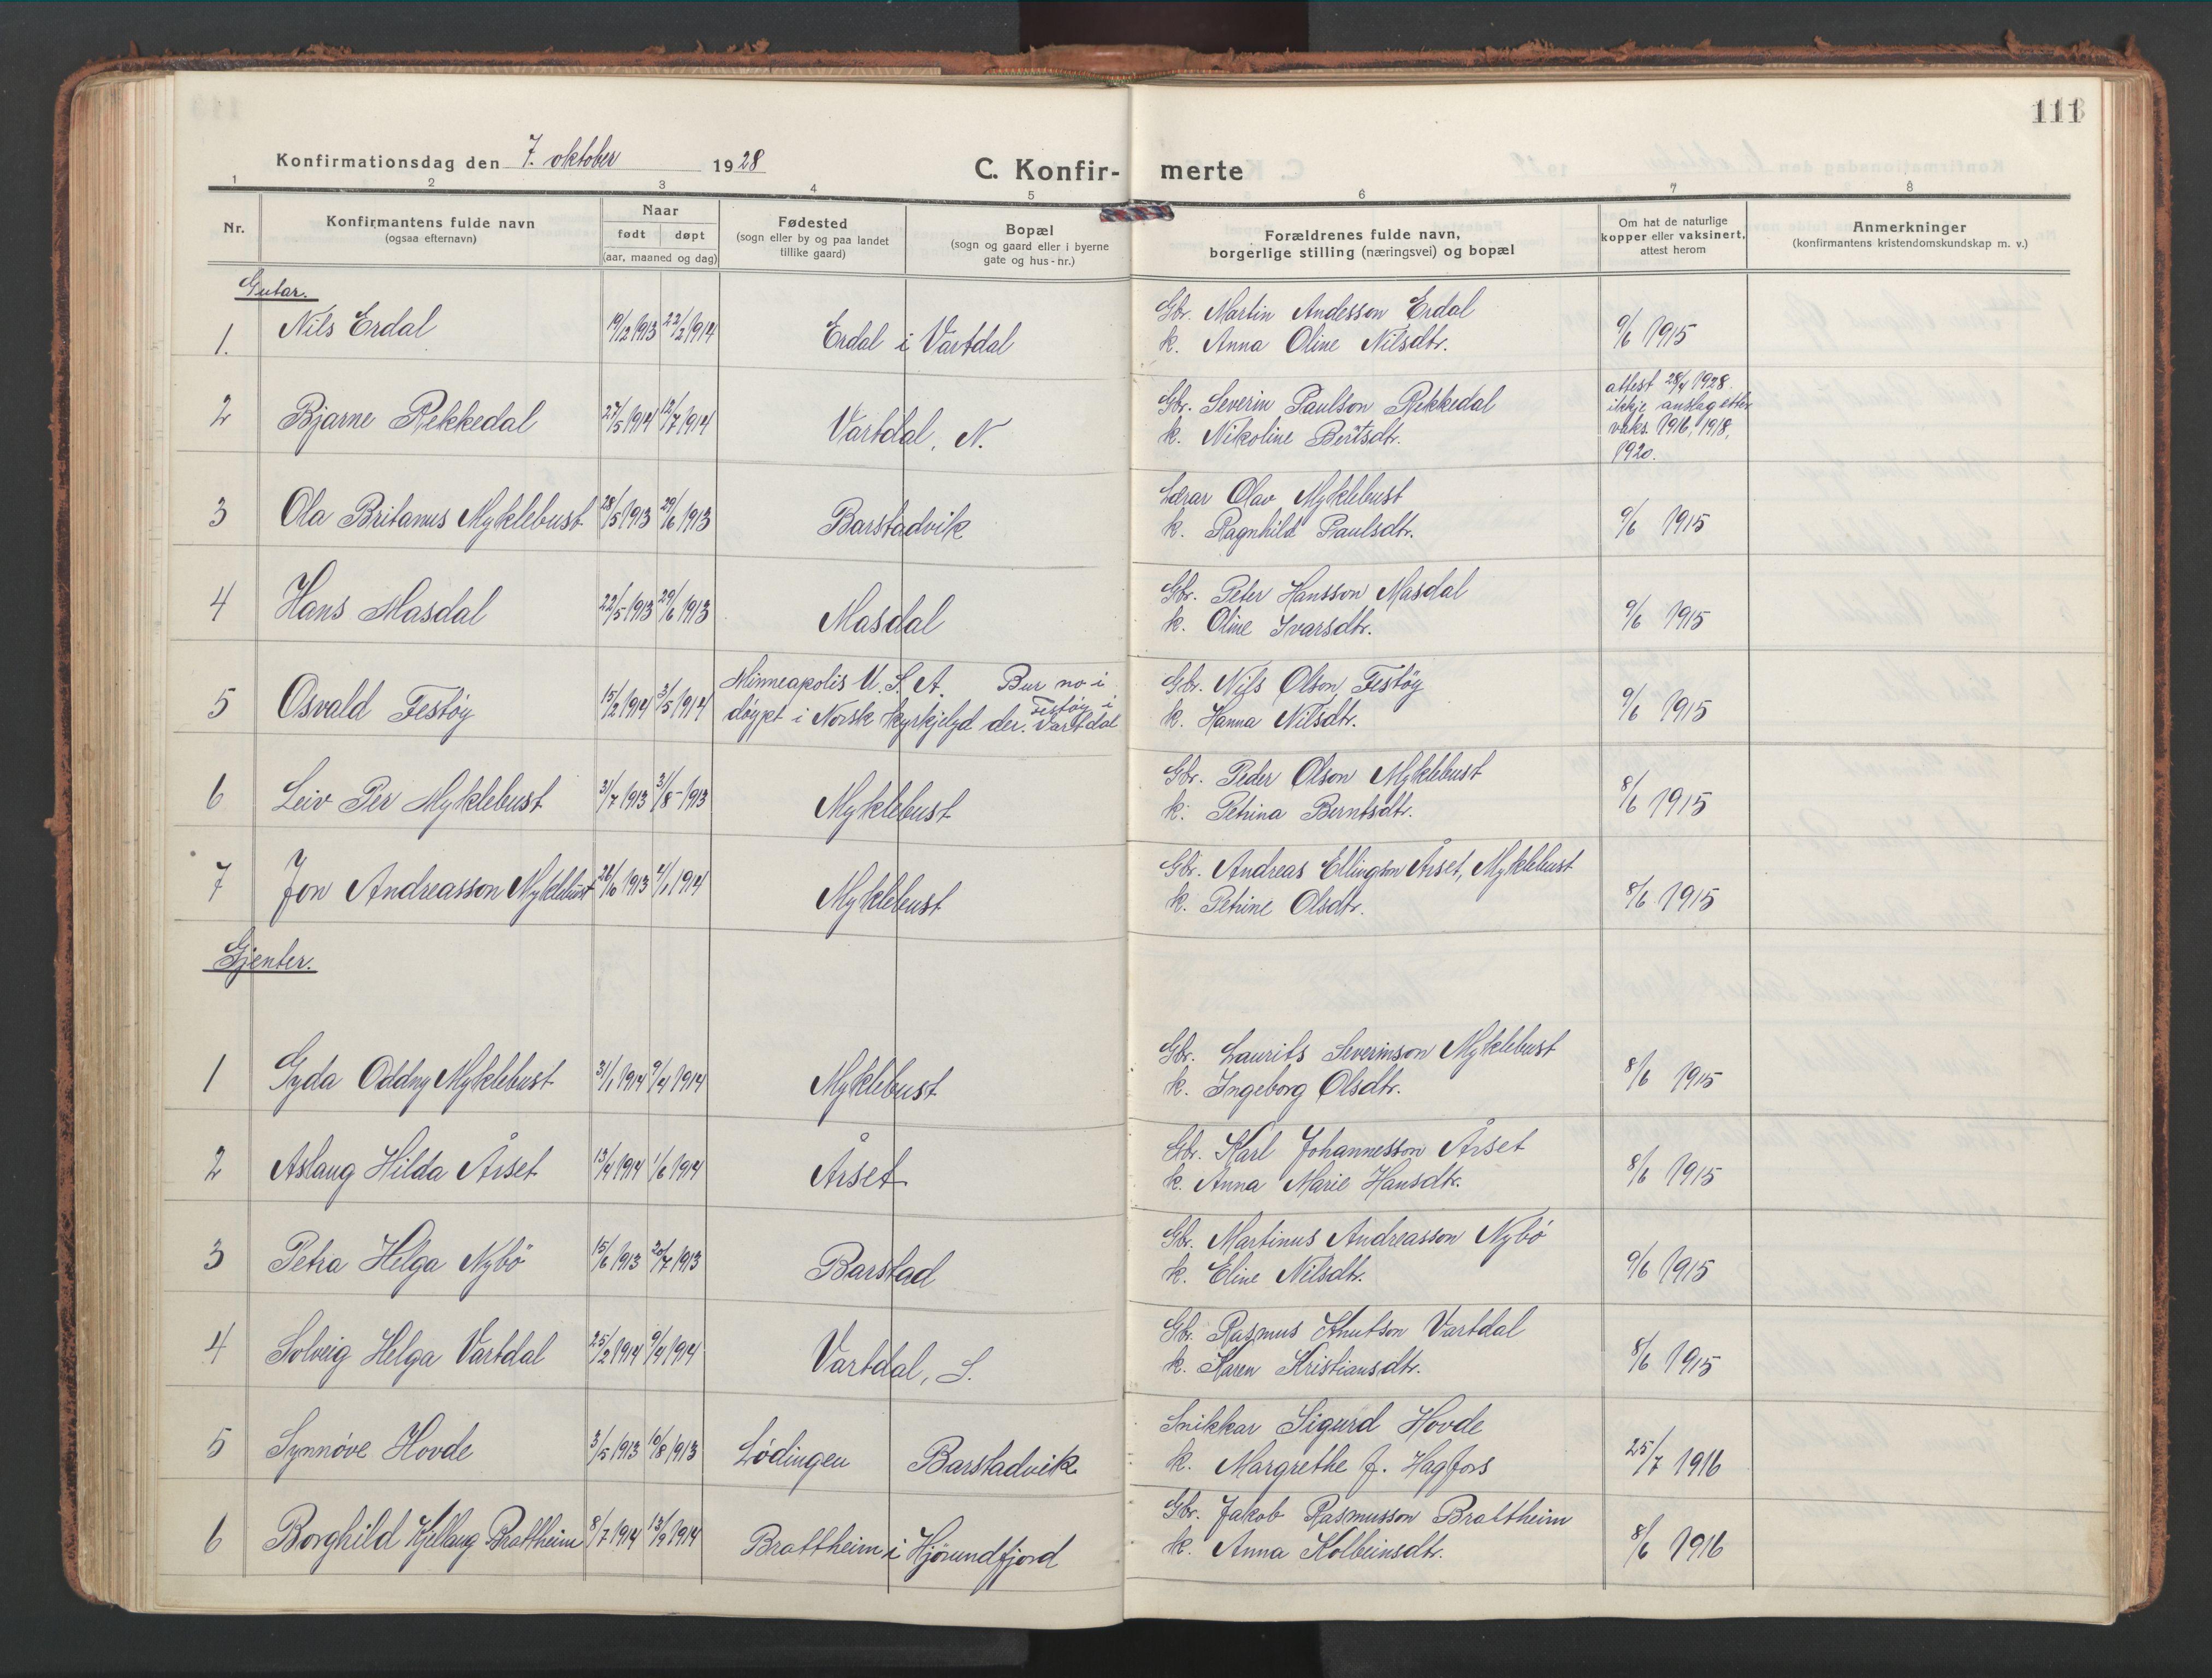 111
Konfirmationsdag den 7. oktober 1928 C. Konfir- merte
1 2 3 4 5 6 7 8
Nr. Konfirmantens fulde navn (ogsaa efternavn) Naar født døpt (aar, maaned og dag) Fødested (sogn eller by og paa landet tillike gaard) Bopæl (sogn og gaard eller i byerne gate og hus-nr.) Forældrenes fulde navn, borgerlige stilling (næringsvei) og bopæl Om hat de naturlige kopper eller vaksinert, attest herom Anmerkninger (konfirmantens kristendomskundskap m. v.)
Gutar.
1. Nils Erdal 19/12 1913 22/2 1914 Erdal i Vartdal Gbr. Martin Andesson Erdal k. Anna Oline Nilsdtr. 9/6 1915
2 Bjarne Rekkedal 27/5 1914 12/7 1914 Vartdal, N. Gbr. Severin Paulson Rekkedal k. Nikoline Bertsdtr. attest 28/4 1928 ikkje anslag etter vaks. 1916, 1918, 1920.
3 Ola Britanus Myklebust 28/5 1913 29/6 1913 Barstadvik Lærar Olav Myklebust k. Ragnhild Paulsdtr. 9/6 1915
4 Hans Masdal 22/5 1913 29/6 1913 Masdal Gbr. Peter Hansson Masdal k. Oline Ivarsdtr. 9/6 1915
5 Osvald Festöy 15/2 1914 3/5 1914 Minneapolis U. S. A. döypt i Norsk kyrkjelyd der. Bur no i Festöy i Vartdal Gbr. Nils Olson Festöy k. Hanna Nilsdtr. 9/6 1915
6 Leiv Per Myklebust 3/7 1913 31/8 - 1913 Myklebust Gbr. Peder Olson Myklebust k. Petrina Berntsdtr. 8/6 1915
7 Jon Andreasson Myklebust 26/10 1913 4/1 1914 Myklebust Gbr. Andreas Ellingson Årset, Myklebust k. Petrine Olsdtr. 8/6 1915
Gjenter.
1 Gyda Oddny Myklebust 31/1 1914 9/4 1914 Myklebust Gbr. Laurits Severinson Myklebust k. Ingeborg Olsdtr. 8/6 1915
2 Aslaug Hilda Årset 13/4 1914 1/6 1914 Årset Gbr. Karl Johannesson Årset k. Anna Marie Hansdtr. 8/6 1915
3 Petra Helga Nybö 15/6 1913 20/7 1913 Barstad Gbr. Martinus Andreasson Nybö k. Eline Nilsdtr. 9/6 1915
4 Solveig Helga Vartdal 25/2 1914 9/4 1914 Vartdal, S. Gbr. Rasmus Knutson Vartdal k. Karen Kristiansdtr. 8/6 1915
5 Synnöve Hovde 3/5 1913 10/8 1913 Lödingen Barstadvik Snikkar Sigurd Hovde k. Margrethe J. Hagfors 25/7 1916
6 Borghild Kjellaug Brattheim 8/7 1914 13/9 1914 Brattheim i Hjörundfjord Gbr. Jakob Rasmusson Brattheim k. Anna Kolbeinsdtr. 8/6 1916